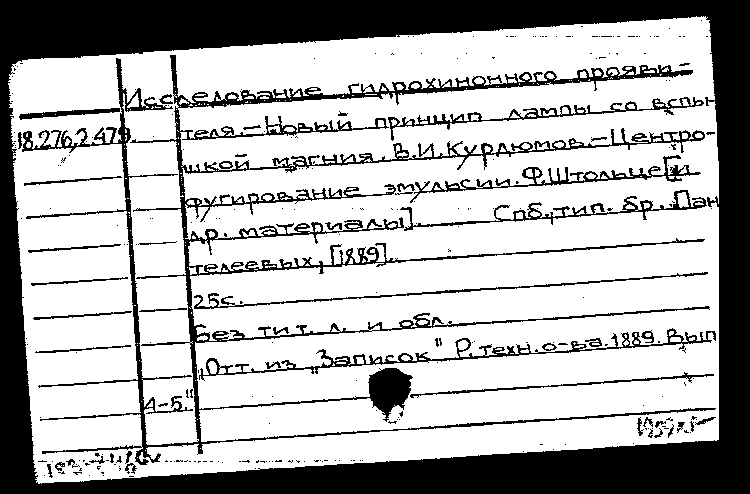 Исследование гидрохинонного прояви-
18.276,2.479. теля.-Новый принцип лампы со вспы-
шкой магния. В.И.Курдюмов.-Центро-
фугирование эмульсии. Ф.Штольце [и
др. материалы]. Спб.,тип. бр. Пан
телеевых, [1889].
25с.
Без тит. л. и обл.
"Отт. из "Записок" Р.техн.о-ва.1889. Вып
4-5."